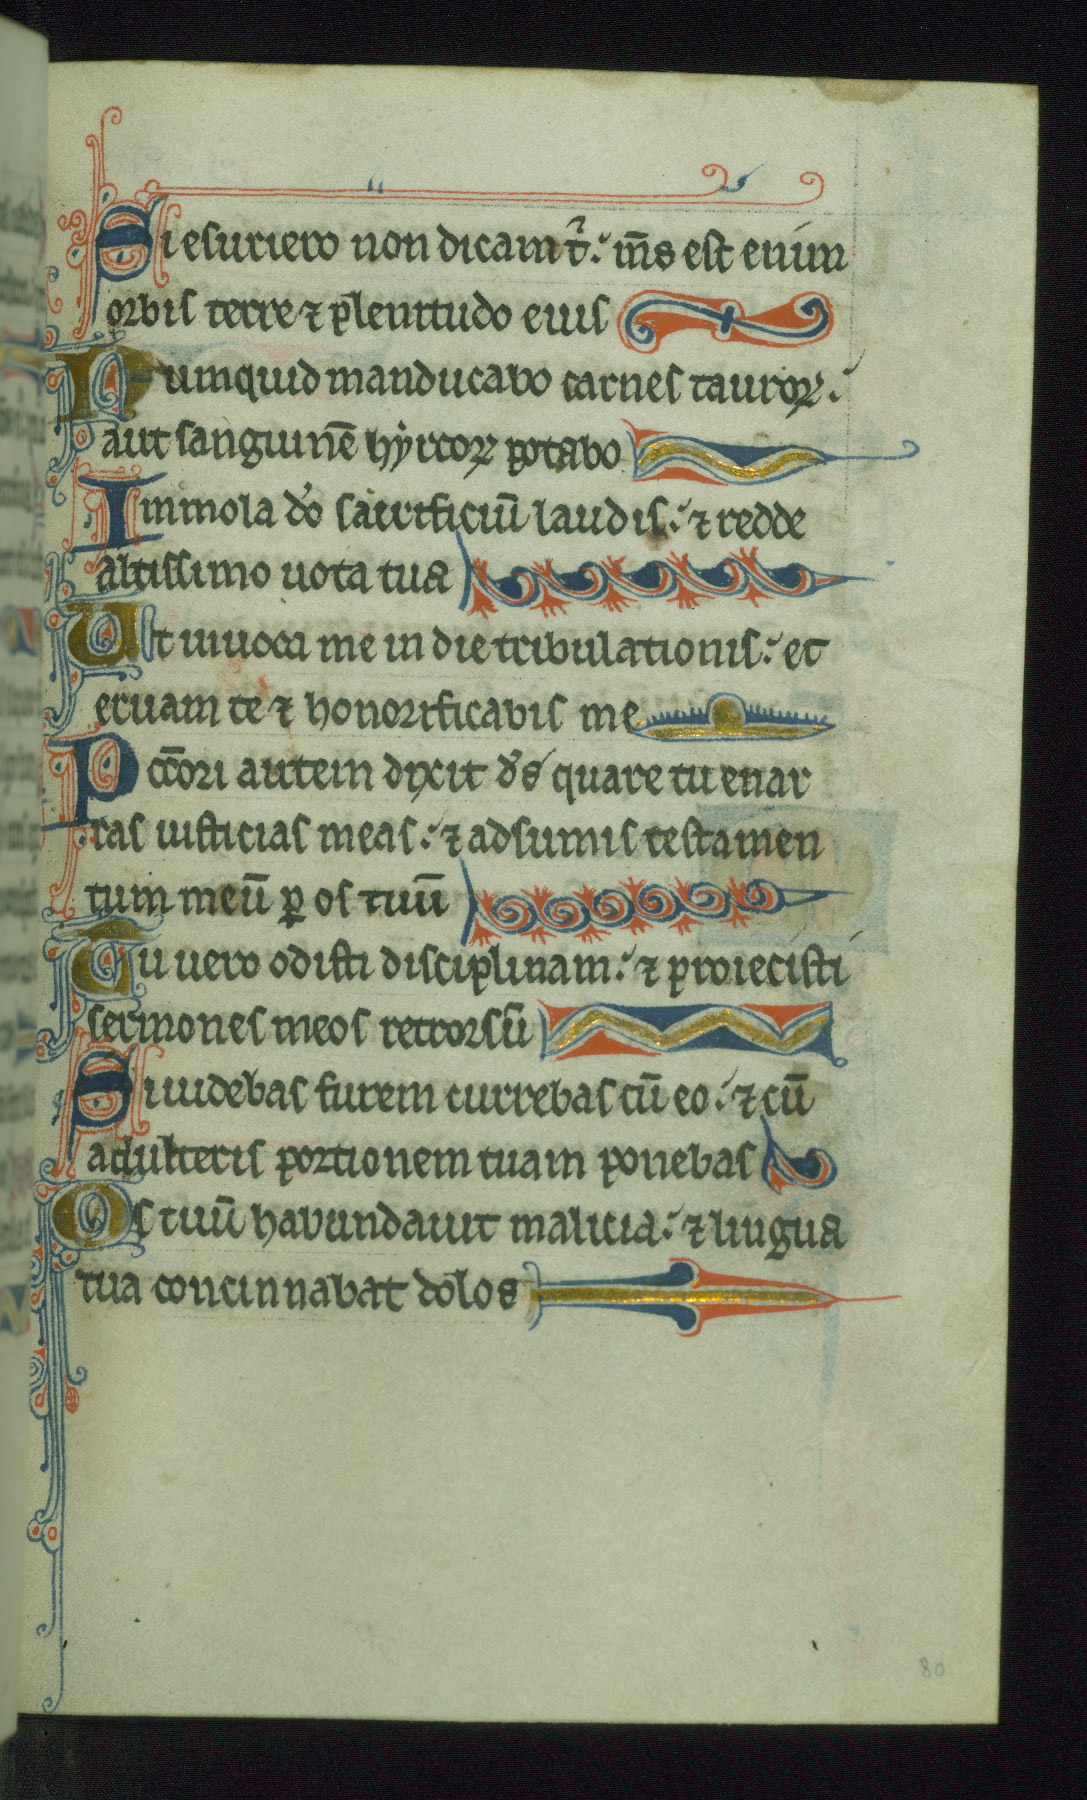 Si esuriero non dicam t̾: m̅s est enim
orbis terre ⁊ plenitudo eius
Numquid manducabo carnes tauroꝝ:
aut sanguinē hẏrcoꝝ potabo
Immola do̾ sacrificiū laudis: ⁊ redde
altissimo uota tua
Et inuoca me in die tribulationis: et
eruam te ⁊ honorificabis me
Pccōri autem dixit ds̾ quare tu enar
ras iusticias meas: ⁊ adsumis testamen
tum meū ꝑ os tuū
Tu uero odisti disciplinam: ⁊ proiecisti
sermones meos retrorsū
Si uidebas furem currebas cū eo: ⁊ cū
adulteris portionem tuam ponebas
Os tuū habundauit malicia: ⁊ lingua
tua concinnabat dolos
80